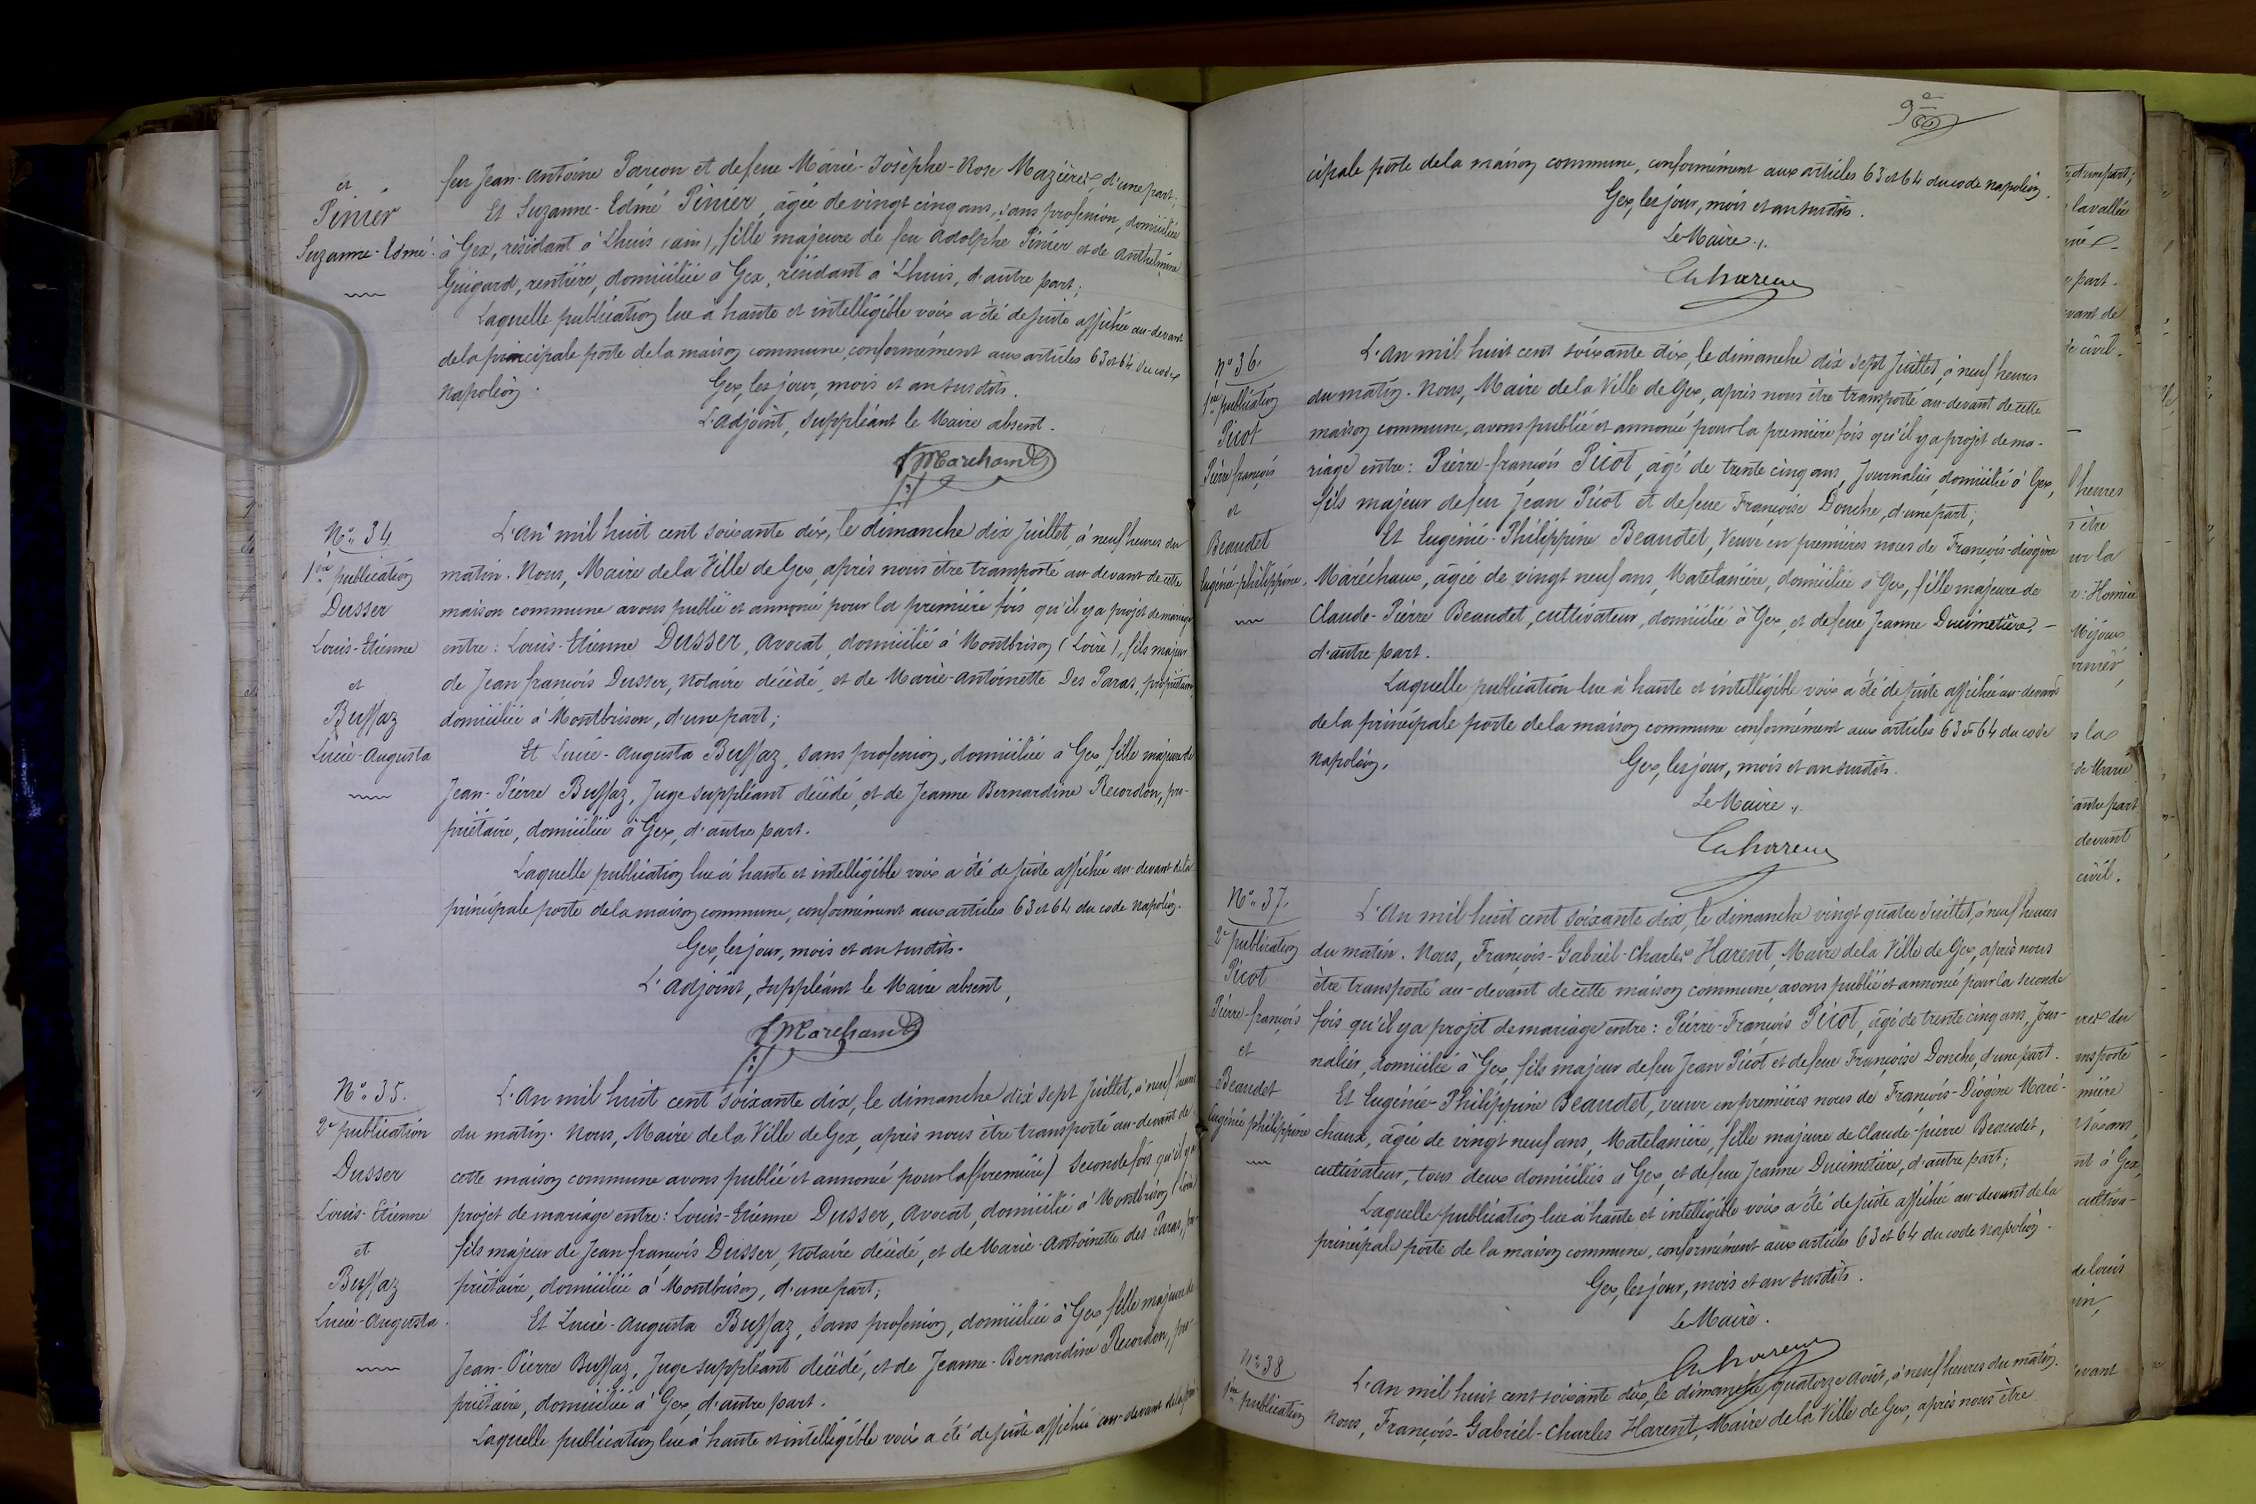 et
Pinier
Suzanne-Edmé.
feu Jean-Antoine Parçon et de feue Marie-Josèphe-Rose Mazières, d'une part;
Et Suzanne-Edmé Pinier, âgée de vingt cinq ans, sans profession, domiciliée
à Gex, résidant à Lhuis (ain), fille majeure de feu Adolphe Pinier et de Anthelmine
Guigard, rentière, domiciliée à Gex, résidant à Lhuis, d'autre part;
Laquelle publication lue à haute et intelligible voix a été de suite affichée au-devant
de la principale porte de la maison commune, conformément aux articles 63 et 64 du code
Napoléon.
Gex, les jour, mois et an susdits.
L'adjoint, suppléant le Maire absent.
Marchand
N° 34
1ère publication
Dusser
Louis-Etienne
et
Buffaz
Lucie-Augusta
L'An mil huit cent soixante dix, le dimanche dix Juillet, à neuf heures du
matin. Nous, Maire de la Ville de Gex, après nous être transporté au devant de cette
maison commune avons publié et annoncé pour la première fois qu'il y a projet de mariage
entre: Louis-Etienne Dusser, avocat, domicilié à Montbrison (Loire), fils majeur
de Jean françois Dusser, Notaire décédé, et de Marie-Antoinette Des Paras, propriétaire
domiciliée à Montbrison, d'une part;
Et Lucie-Augusta Buffaz, sans profession, domiciliée à Gex, fille majeure de
Jean-Pierre Buffaz, Juge suppléant décédé, et de Jeanne Bernardine Recordon, pro-
priétaire, domiciliée à Gex, d'autre part.
Laquelle publication lue à haute et intelligible voix a été de suite affichée au-devant de la
principale porte de la maison commune, conformément aux articles 63 et 64 du code Napoléon.
Gex, les jour, mois et an susdits.
L'Adjoint, suppléant le Maire absent,
Marchand
N° 35.
2e publication
Dusser
Louis-Etienne
et
Buffaz
Lucie-Augusta.
L'An mil huit cent soixante dix, le dimanche dix sept Juillet, à neuf heures
du matin. Nous, Maire de la Ville de Gex, après nous être transporté au-devant de
cette maison commune avons publié et annoncé pour la (première) seconde fois qu'il y a
projet de mariage entre: Louis-Etienne Dusser, avocat, domicilié à Montbrison (Loire
fils majeur de Jean-françois Dusser, Notaire décédé, et de Marie-Antoinette des Paras, pro-
priétaire, domiciliée à Montbrison, d'une part;
Et Lucie-Augusta Buffaz, sans profession, domiciliée à Gex, fille majeure de
Jean-Pierre Buffaz, Juge suppléant décédé, et de Jeanne-Bernardine Recordon, pro-
priétaire, domiciliée à Gex, d'autre part.
Laquelle publication lue à haute et intelligible voix a été de suite affichée au-devant de la prin-
cipale porte de la maison commune, conformément aux articles 63 et 64 du code Napoléon.
Gex, les jour, mois et an susdits.
Le Maire.
N° 36.
1ère publication
Picot
Pierre françois
et
Beaudet
Eugénie philippine.
L'An mil huit cent soixante dix, le dimanche dix sept Juillet, à neuf heures
du matin. Nous, Maire de la Ville de Gex, après nous être transporté au-devant de cette
maison commune, avons publié et annoncé pour la première fois qu'il y a projet de ma-
riage entre: Pierre-françois Picot, âgé de trente cinq ans, Journalier, domicilié à Gex,
fils majeur de feu Jean Picot et de feue Françoise Donche, d'une part;
Et Eugénie-Philippine Beaudet, Veuve en premières noces de François-diogène
Maréchaux, âgée de vingt neuf ans, Matelassière, domiciliée à Gex, fille majeure de
Claude-Pierre Beaudet, cultivateur, domicilié à Gex, et de feue Jeanne Ducimetière, -
d'autre part.
Laquelle publication lue à haute et intelligible voix a été de suite affichée au-devant
de la principale porte de la maison commune conformément aux articles 63 et 64 du code
Napoléon,
Gex, les jour, mois et an susdits.
Le Maire.
N° 37.
2e publication
Picot
Pierre-françois
et
Beaudet
Eugénie philippine
L'An mil huit cent soixante dix, le dimanche vingt quatre Juillet, à neuf heures
du matin. Nous, François-Gabriel-Charles Harent, Maire de la Ville de Gex, après nous
être transporté au-devant de cette maison commune, avons publié et annoncé pour la seconde
fois qu'il y a projet de mariage entre: Pierre-François Picot, âgé de trente cinq ans, Jour-
nalier, domicilié à Gex, fils majeur de feu Jean Picot et de feue Françoise Donche, d'une part.
Et Eugénie-Philippine Beaudet, veuve en premières noces de François-Diogène Maré-
chaux, âgée de vingt neuf ans, Matelassière, fille majeure de Claude-pierre Beaudet,
cultivateur, tous deux domiciliés à Gex, et de feue Jeanne Ducimetière, d'autre part;
Laquelle publication lue à haute et intelligible voix a été de suite affichée au-devant de la
principale porte de la maison commune, conformément aux articles 63 et 64 du code Napoléon.
Gex, les jour, mois et an susdits.
Le Maire.
N° 38
1ère publication
L'An mil huit cent soixante dix, le dimanche quatorze Août, à neuf heures du matin.
Nous, François-Gabriel-Charles Harent, Maire de la Ville de Gex, après nous être